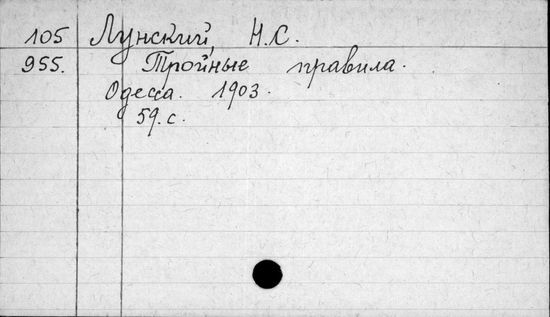 105 Лунский, Н.С.
955. Тройные правила.
Одесса. 1903.
59. с.